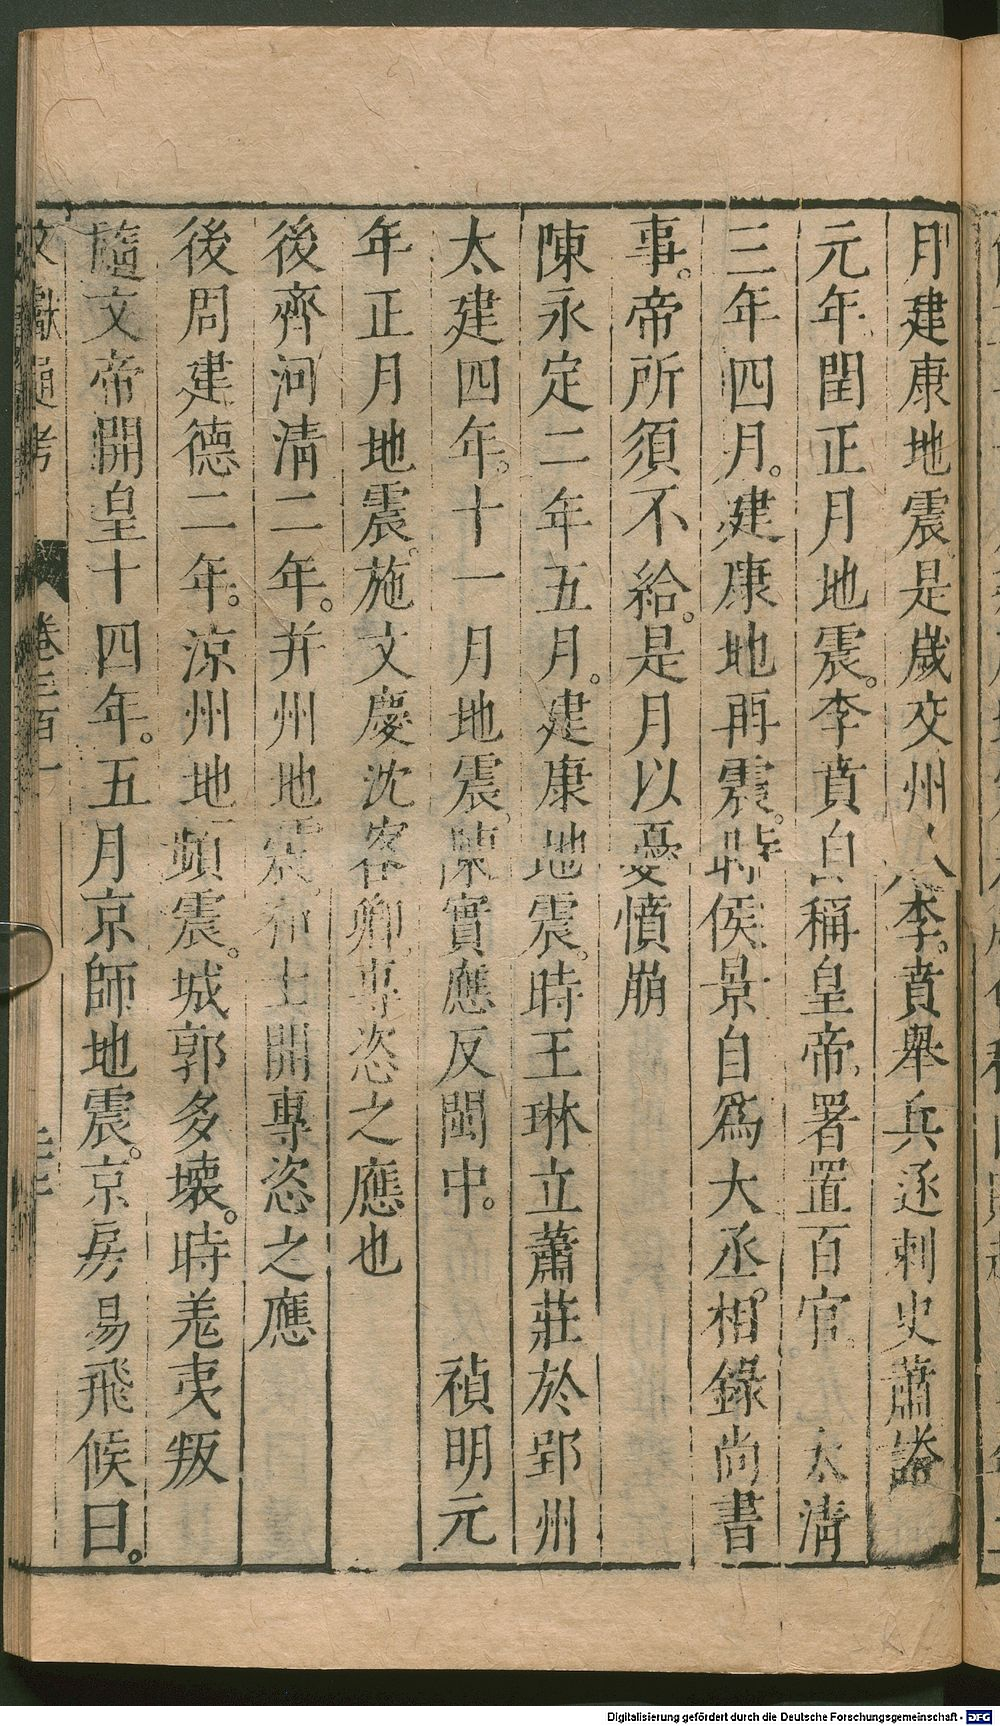 月建康地震是歲交州人李賁舉兵逐刺史蕭諮
元年閏正月地震。李賁自稱皇帝署置百官 太清
三年四月。建康地再震。時侯景自爲大丞。相錄尚書
事。帝所須不給。是月以憂憤崩
陳永定二年五月。建康地震。時王琳立蕭莊於郢州
太建四年。十一月地震。陳實應反閩中。 禎明元
年正月地震。施文慶沈客卿專恣之應也
後齊河清二年。并州地震。和士開專恣之應
後周建德二年。涼州地頻震。城郭多壞。時羗夷叛
隨文帝開皇十四年。五月京師地震。京房易飛候曰。
文獻通考 卷三百一
Digitalisierung gefördert durch die Deutsche Forschungsgemeinschaft - DFG